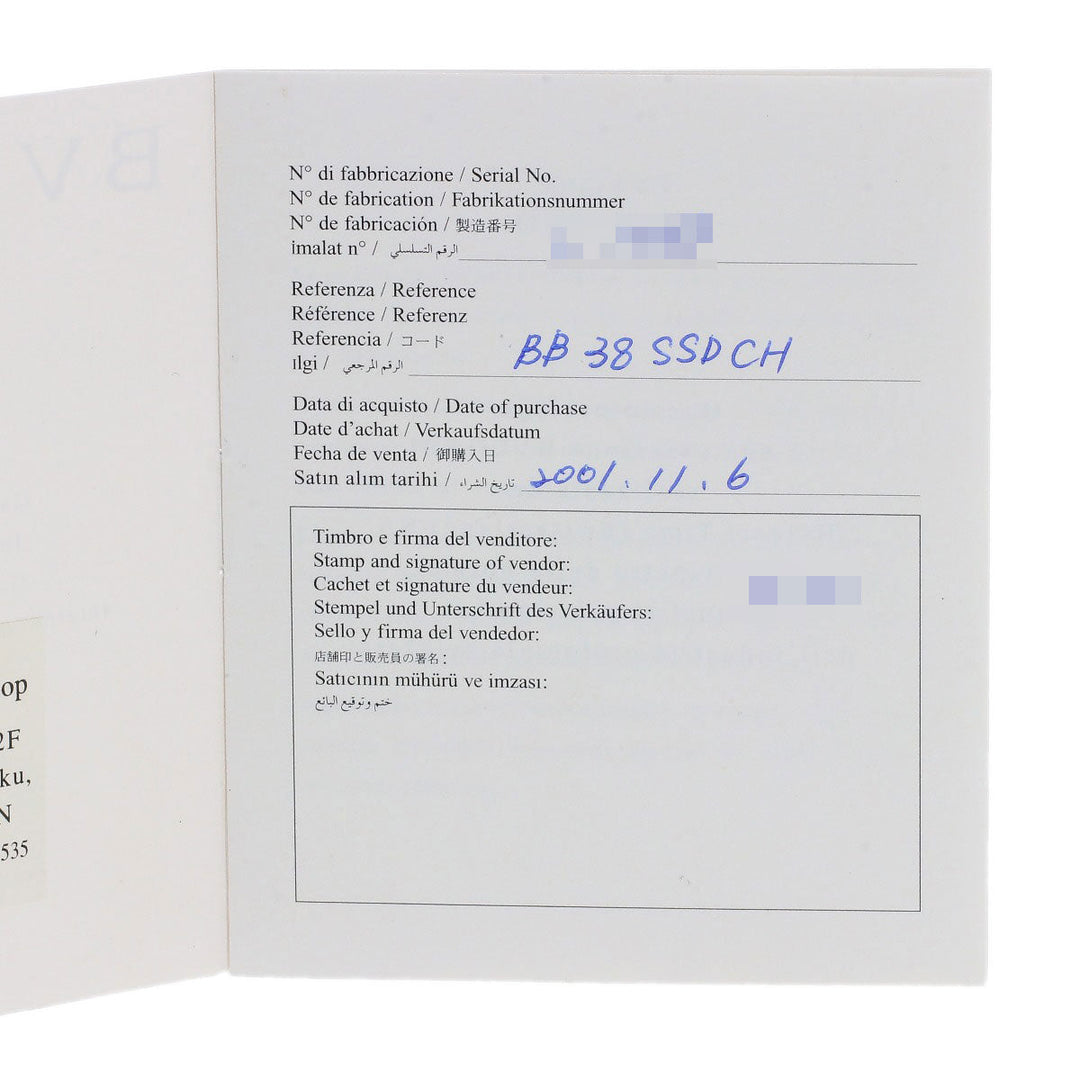 BV
op
2F
ku,
N
535
N° di fabbricazione / Serial No.
N° de fabrication / Fabrikationsnummer
N° de fabricación / 製造番号
imalat n° / الرقم التسلسلي
Referenza / Reference
Référence / Referenz
Referencia / コード
Ilgi / الرقم المرجعي BB 38 SSD CH
Data di acquisto / Date of purchase
Date d'achat / Verkaufsdatum
Fecha de venta / 御購入日
Satın alım tarihi / تاريخ الشراء 2001.11.6
Timbro e firma del venditore:
Stamp and signature of vendor:
Cachet et signature du vendeur:
Stempel und Unterschrift des Verkäufers:
Sello y firma del vendedor:
店舗印と販売員の署名:
Satıcının mühürü ve imzası:
ختم وتوقيع البائع